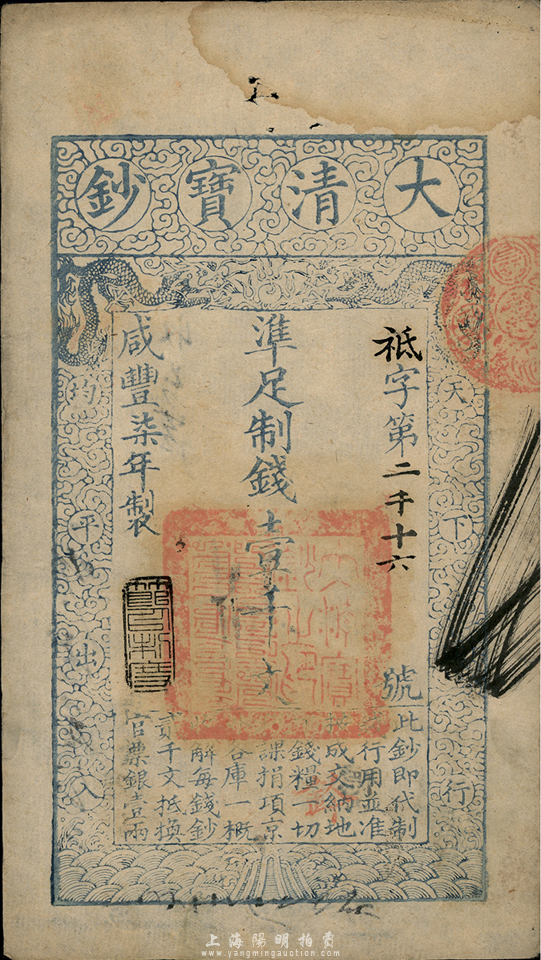 大清寶鈔
天下通行
均平出入
祗字第二千十六號
準足制錢壹千文
咸豐柒年製
此鈔即代制
行用並准
成交納地
錢糧一切
課捐項京
庫一概
解每錢鈔
貳千文抵換
官票銀壹兩
上海陽明拍賣
www.yangmingauction.com